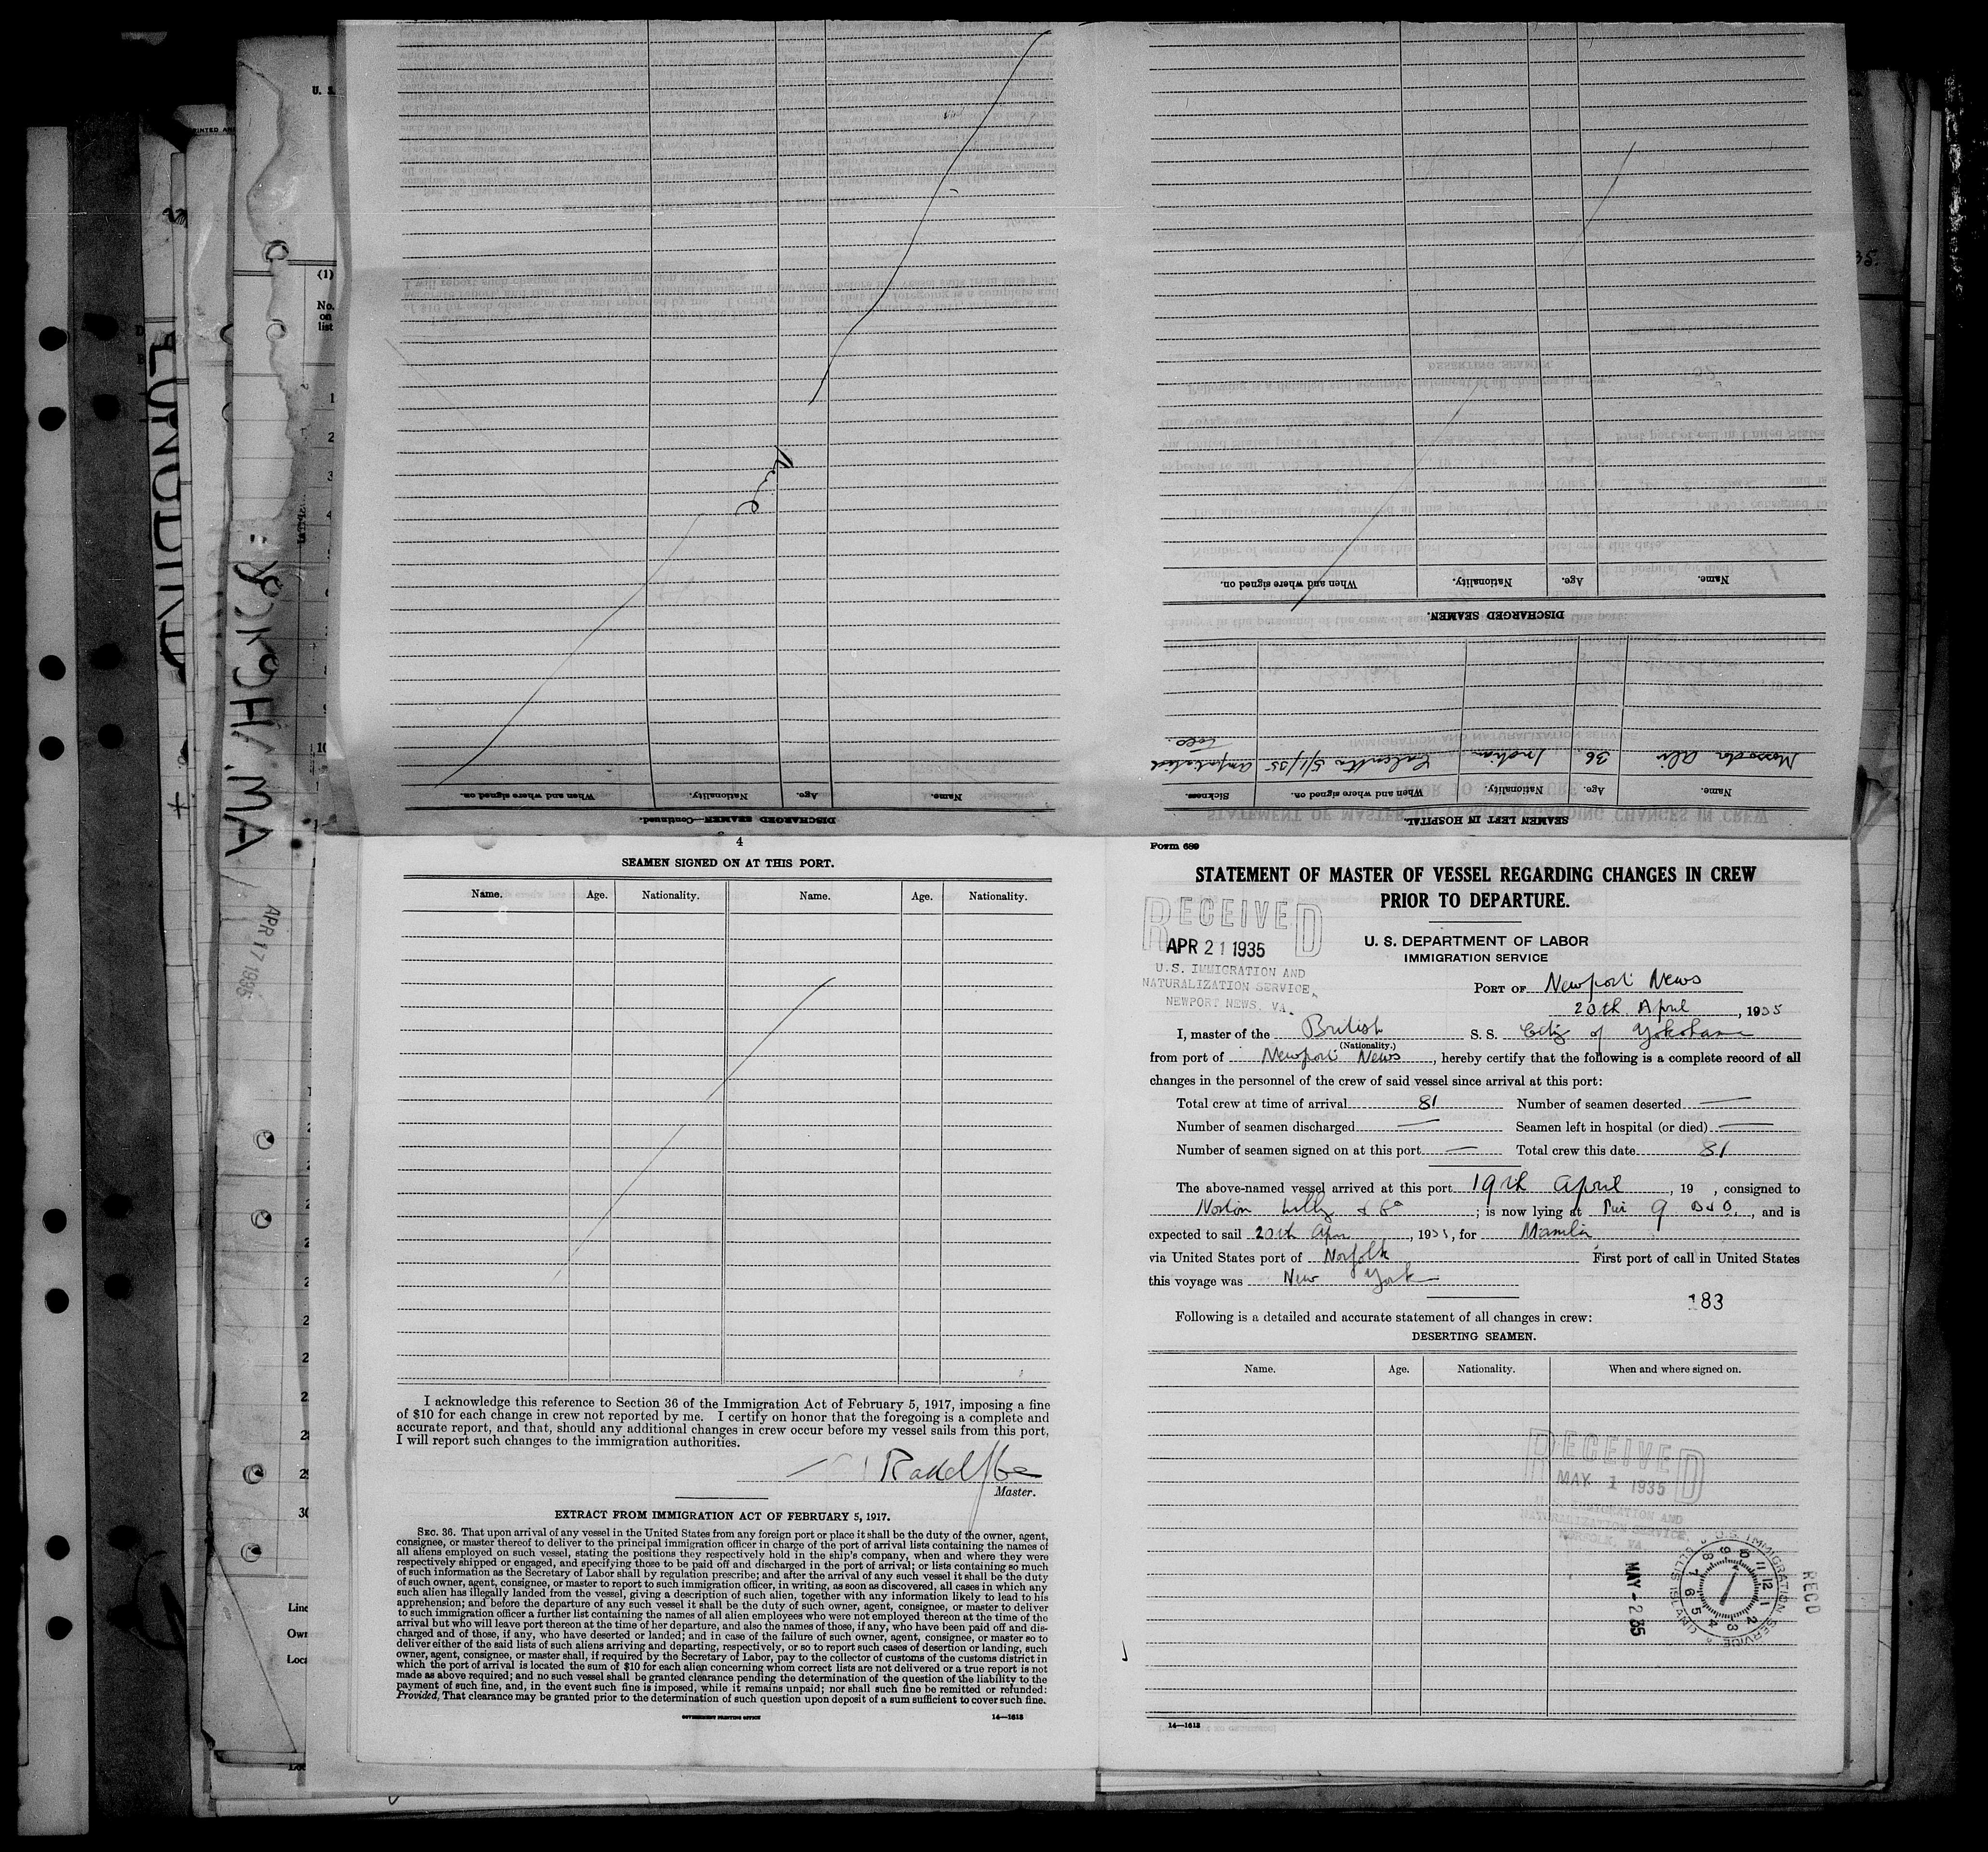 4
SEAMEN SIGNED ON AT THIS PORT.
Name. Age. Nationality. Name. Age. Nationality.
I acknowledge this reference to Section 36 of the Immigration Act of February 5, 1917, imposing a fine
of $10 for each change in crew not reported by me. I certify on honor that the foregoing is a complete and
accurate report, and that, should any additional changes in crew occur before my vessel sails from this port,
I will report such changes to the immigration authorities.
Radcliffe
Master.
EXTRACT FROM IMMIGRATION ACT OF FEBRUARY 5, 1917.
SEC. 36. That upon arrival of any vessel in the United States from any foreign port or place it shall be the duty of the owner, agent,
consignee, or master thereof to deliver to the principal immigration officer in charge of the port of arrival lists containing the names of
all aliens employed on such vessel, stating the positions they respectively hold in the ship's company, when and where they were
respectively shipped or engaged, and specifying those to be paid off and discharged in the port of arrival; or lists containing so much
of such information as the Secretary of Labor shall by regulation prescribe; and after the arrival of any such vessel it shall be the duty
of such owner, agent, consignee, or master to report to such immigration officer, in writing, as soon as discovered, all cases in which any
such alien has illegally landed from the vessel, giving a description of such alien, together with any information likely to lead to his
apprehension; and before the departure of any such vessel it shall be the duty of such owner, agent, consignee, or master to deliver
to such immigration officer a further list containing the names of all alien employees who were not employed thereon at the time of the
arrival but who will leave port thereon at the time of her departure, and also the names of those, if any, who have been paid off and dis-
charged and of those, if any, who have deserted or landed; and in case of the failure of such owner, agent, consignee, or master so to
deliver either of the said lists of such aliens arriving and departing, respectively, or so to report such cases of desertion or landing, such
owner, agent, consignee, or master shall, if required by the Secretary of Labor, pay to the collector of customs of the customs district in
which the port of arrival is located the sum of $10 for each alien concerning whom correct lists are not delivered or a true report is not
made as above required; and no such vessel shall be granted clearance pending the determination of the question of the liability to the
payment of such fine, and, in the event such fine is imposed, while it remains unpaid; nor shall such fine be remitted or refunded:
Provided, That clearance may be granted prior to the determination of such question upon deposit of a sum sufficient to cover such fine.
GOVERNMENT PRINTING OFFICE 14—1613
Form 689
STATEMENT OF MASTER OF VESSEL REGARDING CHANGES IN CREW
PRIOR TO DEPARTURE.
RECEIVED
APR 21 1935
U.S. IMMIGRATION AND
NATURALIZATION SERVICE,
NEWPORT NEWS, VA.
U. S. DEPARTMENT OF LABOR
IMMIGRATION SERVICE
PORT OF Newport News
20th April, 1935
I, master of the British S. S. City of Yokohama
(Nationality.)
from port of Newport News, hereby certify that the following is a complete record of all
changes in the personnel of the crew of said vessel since arrival at this port:
Total crew at time of arrival 81 Number of seamen deserted —
Number of seamen discharged — Seamen left in hospital (or died) —
Number of seamen signed on at this port — Total crew this date 81
The above-named vessel arrived at this port 19th April, 19 , consigned to
Norton Lilly & Co; is now lying at Pier 9 B & O., and is
expected to sail 20th Apr, 1935, for Manila
via United States port of Norfolk First port of call in United States
this voyage was New York
183
Following is a detailed and accurate statement of all changes in crew:
DESERTING SEAMEN.
Name. Age. Nationality. When and where signed on.
RECEIVED
MAY 1 1935
U.S. IMMIGRATION AND
NATURALIZATION SERVICE,
NORFOLK, VA.
U.S. IMMIGRATION SERVICE
ELLIS ISLAND
MAY-2 35
REC'D
14—1613
SEAMEN LEFT IN HOSPITAL.
Name. Age. Nationality. When and where signed on. Sickness.
Ali 36 Indian Calcutta 5/1/35 amputated
toes.
DISCHARGED SEAMEN.
Name. Age. Nationality. When and where signed on.
DISCHARGED SEAMEN—Continued.
Name. Age. Nationality. When and where signed on.
APR 17 1935
(1)
No.
on
list